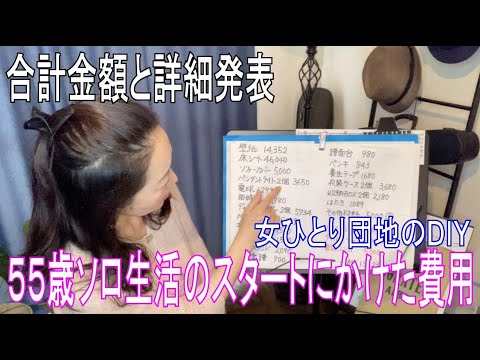 合計金額と詳細発表
壁紙 14,352
床シート 46,040
ソファーカバー 5,000
ペンダントライト2個 3650
電球
2個 5734
900
譜面台 980
ペンキ 843
養生テープ 1680
収納ケース2個 3,680
収納BOX2個 2,180
はたき 1089
5,000
女ひとり団地のDIY
55歳ソロ生活のスタートにかけた費用